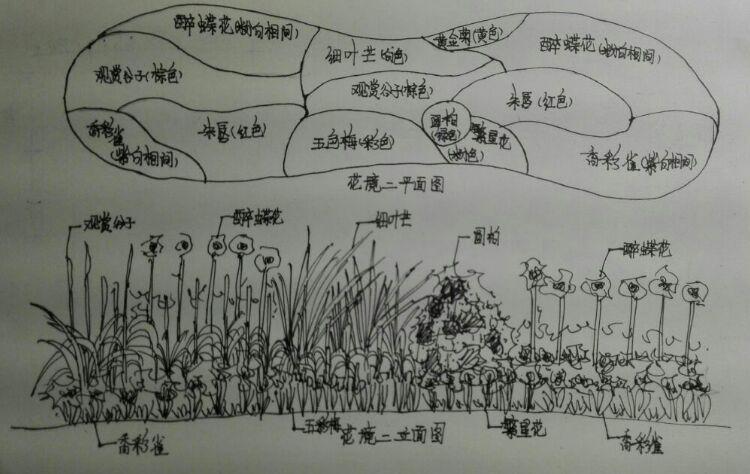 醉蝶花(粉白相间)
黄金菊(黄色)
细叶芒(白色)
醉蝶花(粉白相间)
观赏谷子(棕色)
观赏谷子(棕色)
朱唇(红色)
朱唇(红色)
香彩雀
(紫白相间)
五色梅(彩色)
圆柏
(绿色)
繁星花
(粉色)
香彩雀(紫白相间)
花境二平面图
观赏谷子
醉蝶花
细叶芒
圆柏
醉蝶花
香彩雀
五彩梅
花境二立面图
繁星花
香彩雀